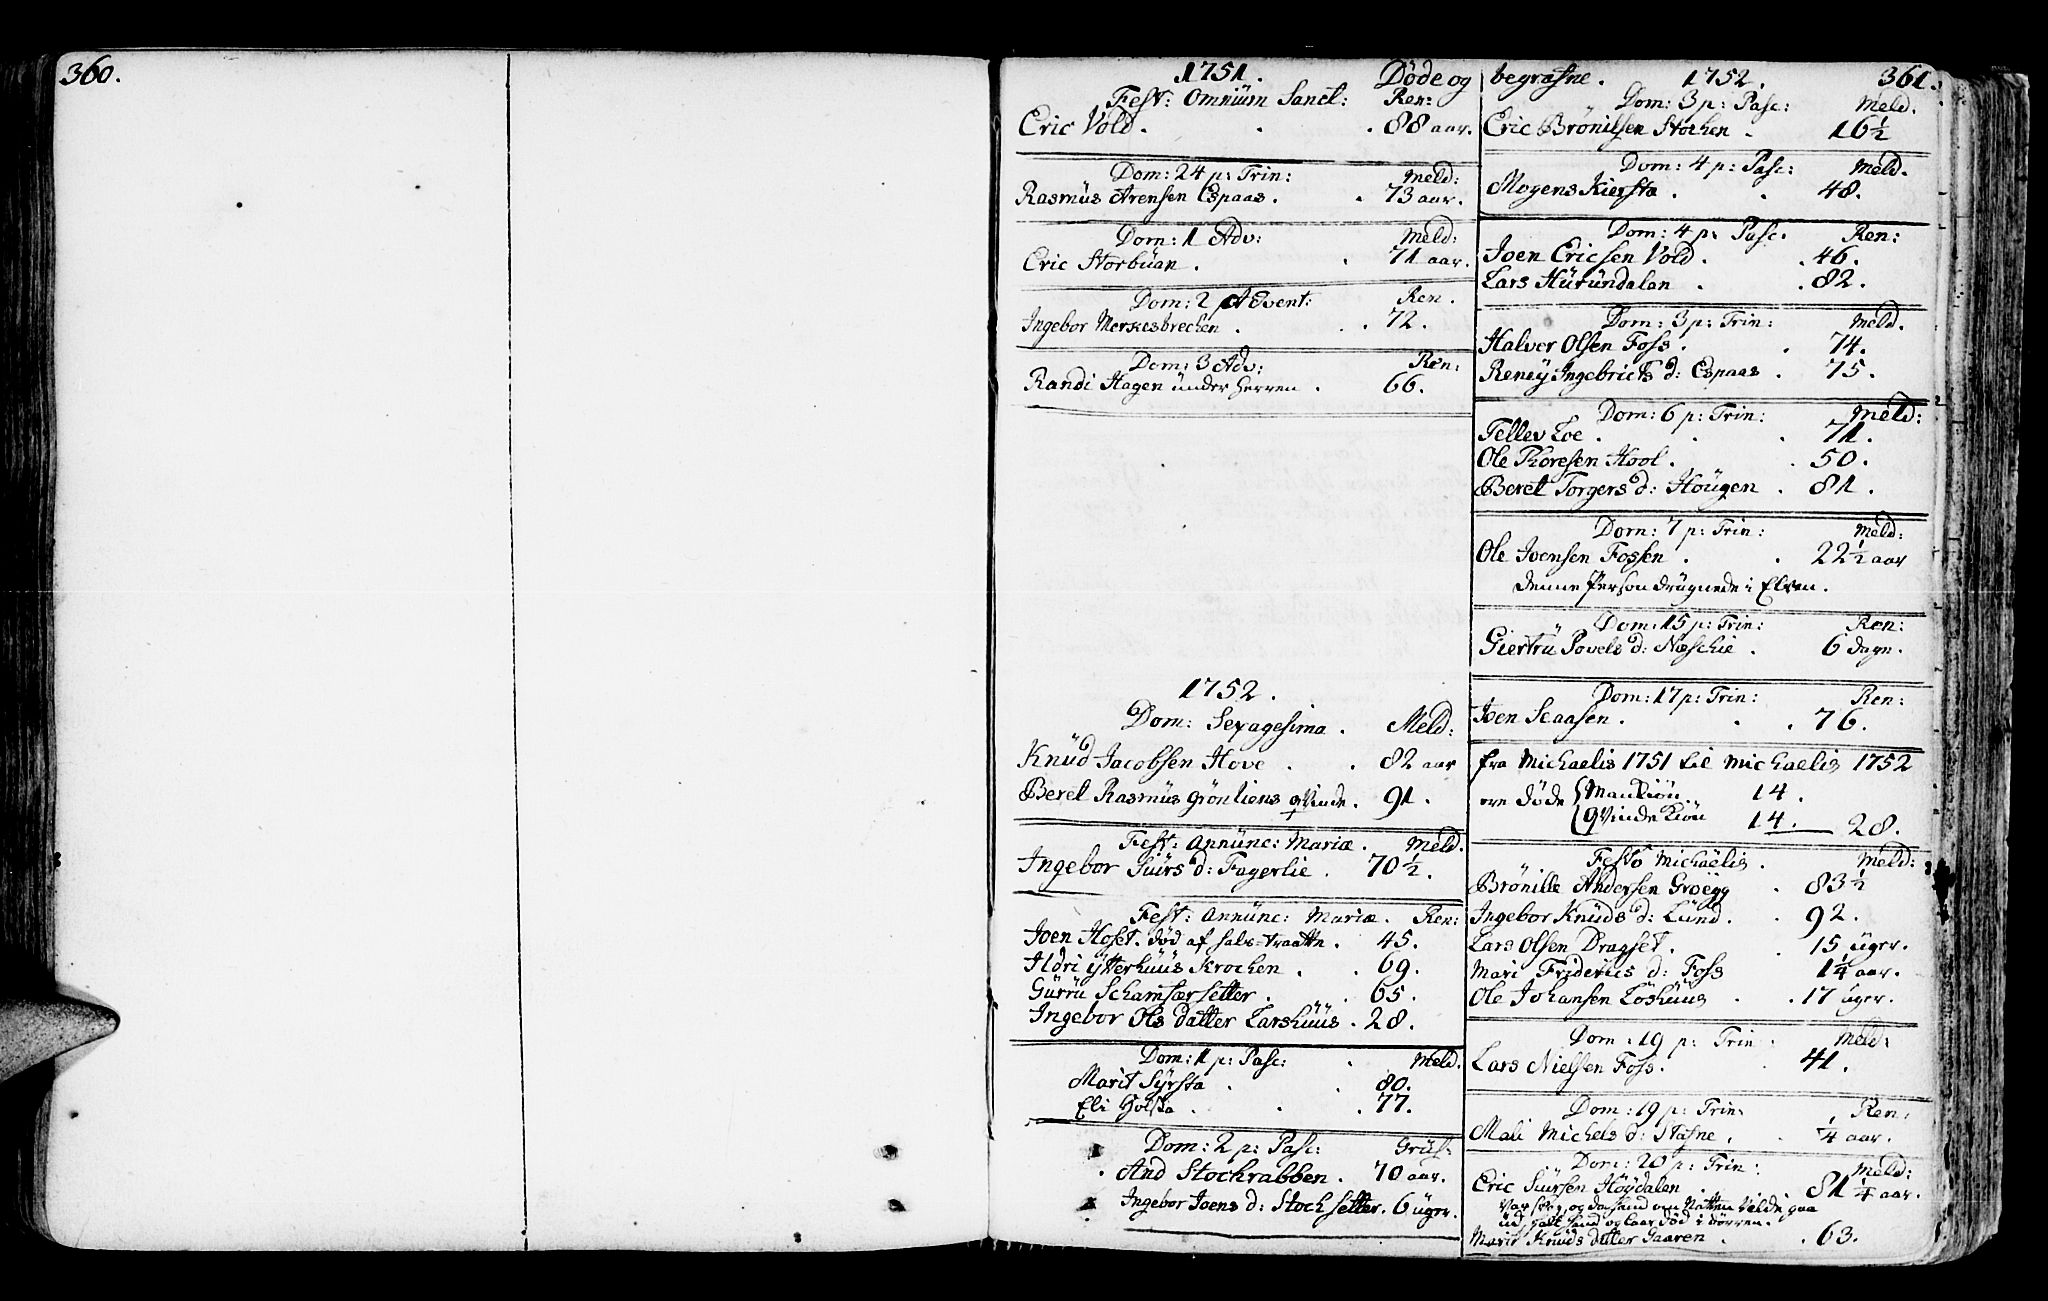 360.
1751. Døde og
Fest: Omnium Sanct: Ren:
Eric Vold. 88 aar.
Dom: 24 p: Trin: Meld:
Rasmus Arensen Espaas. 73 aar.
Dom: 1 Adv: Meld:
Eric Storbuan. 71 aar.
Dom: 2 Advent: Ren.
Ingebor Merkesbrechen. 72.
Dom: 3 Adv: Ren:
Randi Hagen under Herren. 66.
1752.
Dom: Sexagesima. Meld:
Knud Jacobsen Hove. 82 aar
Beret Rasmus Grønliens qvinde. 91.
Fest: Annunc: Mariæ. Meld.
Ingebor Guirs d: Fagerlie. 70½.
Fest: Annunc: Mariæ. Ren:
Joen Hoset. død af 45.
Ildri Ytterhuus Krochen. 69.
Gurru Schamfærsetter. 65.
Ingebor Ols datter Larshuus. 28.
Dom: 1 p: Pasc: Meld.
Marit Syrsta. 80.
Eli 77.
Dom: 2 p: Pasc: Grüs:
And Stochrabben. 70 aar.
Ingebor Joens d: Stochsetter. 6 uger.
begrafne. 1752. 361.
Dom: 3 p: Pasc: Meld:
Eric Brønilsen Stochen. 16½
Dom: 4 p: Pasc: Meld.
Mogens Kiersta. 48.
Dom: 4 p: Pasc. Ren:
Joen Ericsen Vold. 46.
Lars Hurundalan. 82.
Dom: 3 p: Trin: Meld.
Halver Olsen Foss. 74.
Reney Ingebricts d: Espaas. 75.
Dom: 6 p: Trin: Meld:
Tellev Loe. 71.
Ole Thoresen Hool. 50.
Beret Torgers d: Hougen. 81.
Dom: 7 p: Trin: Meld:
Ole Joensen Fossen. 22½ aar
denne Person drugnede i Elven.
Dom: 15 p: Trin: Ren:
Giertru Povels d: Næschie. 6 dage.
Dom: 17 p: Trin: Ren:
Joen Seaasen. 76.
fra Michaelis 1751 til Michaelis 1752
ere døde Mankiøn 14.
Qvindekiøn 14. 28.
Festo Michaëlis. Meld:
Brønille Andersen Groegg 83½
Ingebor Knuds d: Lund. 92.
Lars Olsen Dragset. 15 uger.
Mari Friderics d: Foss 1¼ aar.
Ole Johansen Løshuus 17 uger.
Dom: 19 p: Trin. Meld:
Lars Nielsen Foss. 41.
Dom: 19 p: Trin: Ren:
Mali Michels d: Stafne. ¼ aar.
Dom: 20 p: Trin: Meld:
Eric Siursen Høydalen 81¼ aar.
Var svag, og da hand om Natten vilde gaa
ud, galt hand og laae død i dørren.
Marit Knuds datter Gaaren 63.